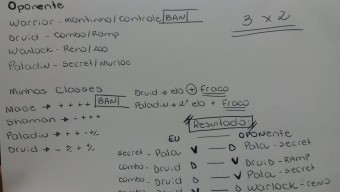 Oponente
Warrior - Montinho/Controle BAN
Druid - Combo/Ramp
Warlock - Reno/zoo
Paladin - Secret/Murloc
3 x 2
Minhas Classes
Mage → + + + + BAN
Shaman → - + + +
Paladin → + + - +/-
Druid → - +/- + +/-
Druid → elo + fraco
Paladin → 2° elo + fraco
Resultado:
EU — OPONENTE
secret - Pala V — D Pala - secret
combo - Druid D — V Druid - Ramp
combo - Druid D — V Pala - secret
combo - Druid — D Warlock - reno